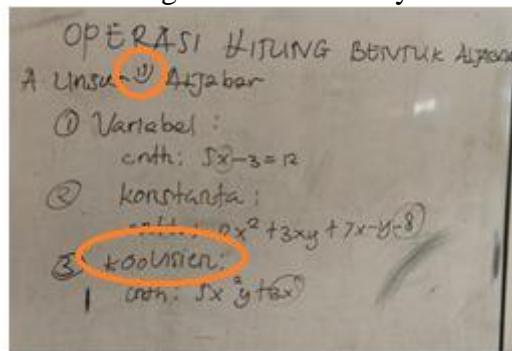 OPERASI HITUNG BENTUK ALJABAR
A Unsur" Aljabar
① Variabel :
cnth: 5x-3=12
② konstanta :
cnth: 2x² + 3xy + 7x-y-8
③ koofisien:
cnth: 5x²y+3x